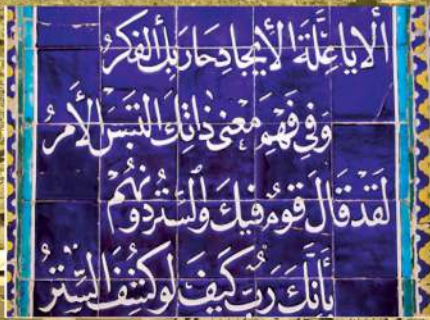 ألا يا علة الأيجاد حار بك الفكر
وفي فهم معنى ذاتك التبس الأمر
لقد قال قوم فيك والستر دونهم
بأنك رب كيف لو كشف الستر